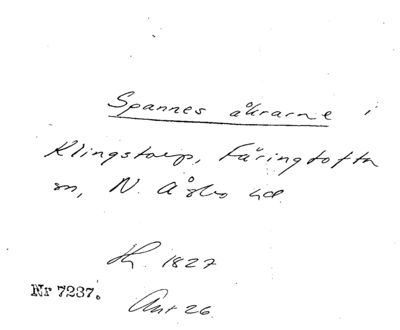 Spannes åkrarne i
Klingstorp, Färingtofta
sn, N. Åsbo hd
Hy. 1827
Nr 7237.
Akt 26